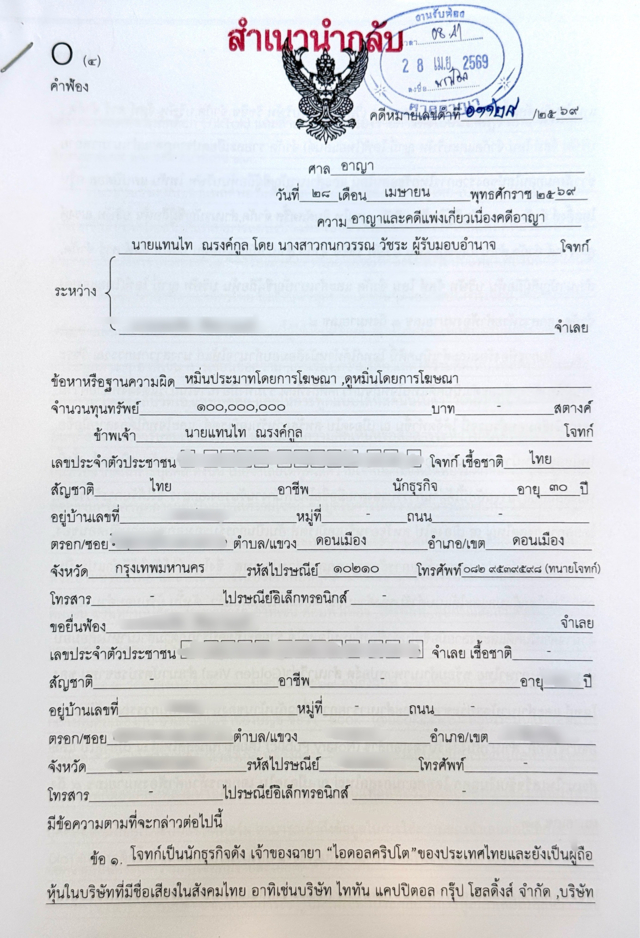 สำเนานำกลับ
งานรับฟ้อง
28 เม.ย. 2569
ศาลอาญา
O (๔)
คำฟ้อง
คดีหมายเลขดำที่ /๒๕๖๙
ศาล อาญา
วันที่ ๒๘ เดือน เมษายน พุทธศักราช ๒๕๖๙
ความ อาญาและคดีแพ่งเกี่ยวเนื่องคดีอาญา
นายแทนไท ณรงค์กูล โดย นางสาวกนกวรรณ วัชระ ผู้รับมอบอำนาจ โจทก์
ระหว่าง
จำเลย
ข้อหาหรือฐานความผิด หมิ่นประมาทโดยการโฆษณา ,ดูหมิ่นโดยการโฆษณา
จำนวนทุนทรัพย์ ๑๐๐,๐๐๐,๐๐๐ บาท - สตางค์
ข้าพเจ้า นายแทนไท ณรงค์กูล โจทก์
เลขประจำตัวประชาชน โจทก์ เชื้อชาติ ไทย
สัญชาติ ไทย อาชีพ นักธุรกิจ อายุ ๓๐ ปี
อยู่บ้านเลขที่ หมู่ที่ - ถนน -
ตรอก/ซอย ตำบล/แขวง ดอนเมือง อำเภอ/เขต ดอนเมือง
จังหวัด กรุงเทพมหานคร รหัสไปรษณีย์ ๑๐๒๑๐ โทรศัพท์ ๐๘๒ ๙๕๓๙๕๙๘ (ทนายโจทก์)
โทรสาร - ไปรษณีย์อิเล็กทรอนิกส์ -
ขอยื่นฟ้อง จำเลย
เลขประจำตัวประชาชน จำเลย เชื้อชาติ -
สัญชาติ อาชีพ - อายุ ปี
อยู่บ้านเลขที่ หมู่ที่ ถนน
ตรอก/ซอย ตำบล/แขวง อำเภอ/เขต
จังหวัด รหัสไปรษณีย์ โทรศัพท์ -
โทรสาร - ไปรษณีย์อิเล็กทรอนิกส์ -
มีข้อความตามที่จะกล่าวต่อไปนี้
ข้อ ๑. โจทก์เป็นนักธุรกิจดัง เจ้าของฉายา “ไอดอลคริปโต”ของประเทศไทยและยังเป็นผู้ถือ
หุ้นในบริษัทที่มีชื่อเสียงในสังคมไทย อาทิเช่นบริษัท ไททัน แคปปิตอล กรุ๊ป โฮลดิ้งส์ จำกัด ,บริษัท